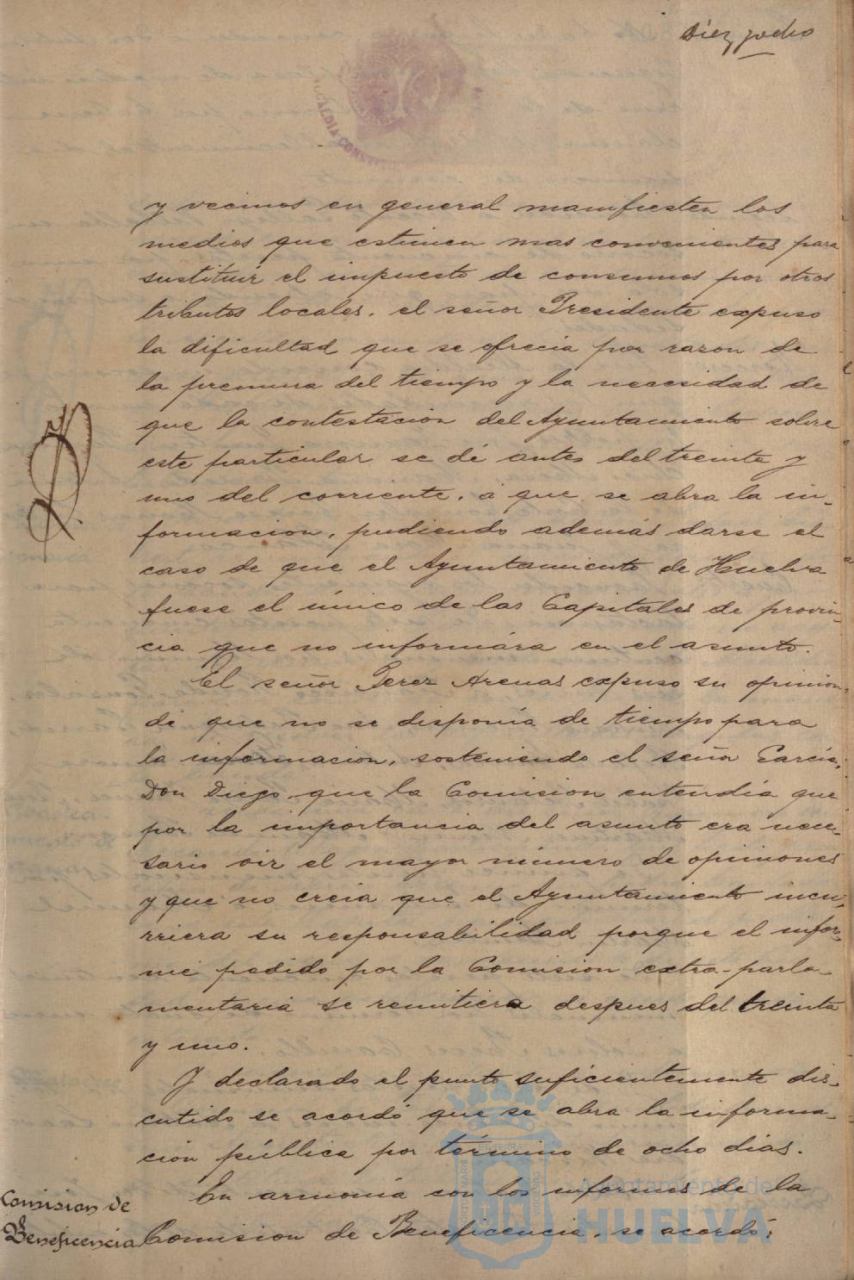 Diez y ocho
ALCALDIA CONST
y vecinos en general manifiesten los
medios que estimen mas convenientes para
sustituir el impuesto de consumos por otros
tributos locales, el señor Presidente expuso
la dificultad que se ofrecia por razon de
la premura del tiempo y la necesidad de
que la contestacion del Ayuntamiento sobre
este particular se dé antes del treinta y
uno del corriente, á que se abra la in-
formacion, pudiendo además darse el
caso de que el Ayuntamiento de Huelva
fuese el único de las Capitales de provin-
cia que no informára en el asunto.
El señor Perez Arenas expuso su opinion
de que no se disponia de tiempo para
la informacion, sosteniendo el señor García,
Don Diego, que la Comision entendía que
por la importancia del asunto era nece-
sario oir el mayor número de opiniones
y que no creia que el Ayuntamiento incu-
rriera su responsabilidad porque el infor-
me pedido por la Comision extra-parla-
mentaria se remitiera despues del treinta
y uno.
Y declarado el punto suficientemente dis-
cutido se acordó que se abra la informa-
ción pública por término de ocho dias.
Comision de
Beneficencia
En armonía con los informes de la
Comision de Beneficencia, se acordó:
Ayuntamiento de
HUELVA